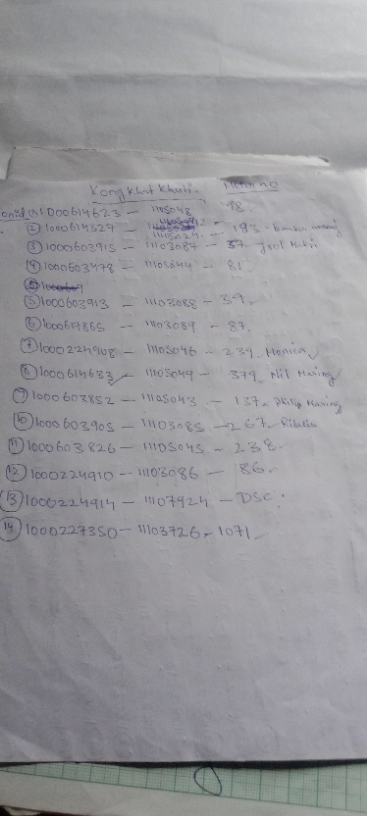 Kongkhat Khuti. Meter no
(1) 1000614623 - 1105048 98.
(2) 1000614529 - 193.
(3) 1000603915 - 11103087 - 37.
(4) 1000603478 - 1105044 - 81
(5) 1000603913 - 11103088 - 39.
(6) - 11103089 - 87.
(7) 1000224908 - 1105046 - 239. Monica
(8) 1000614633 - 1105049 - 379.
(9) 1000603852 - 1105043 - 137.
(10) 1000603905 - 11103085 - 267.
(11) 1000603826 - 1105045 - 238.
(12) 1000224910 - 11103086 - 86.
(13) 1000224914 - 11107924 - DSC.
(14) 1000227350 - 11103726 - 1071